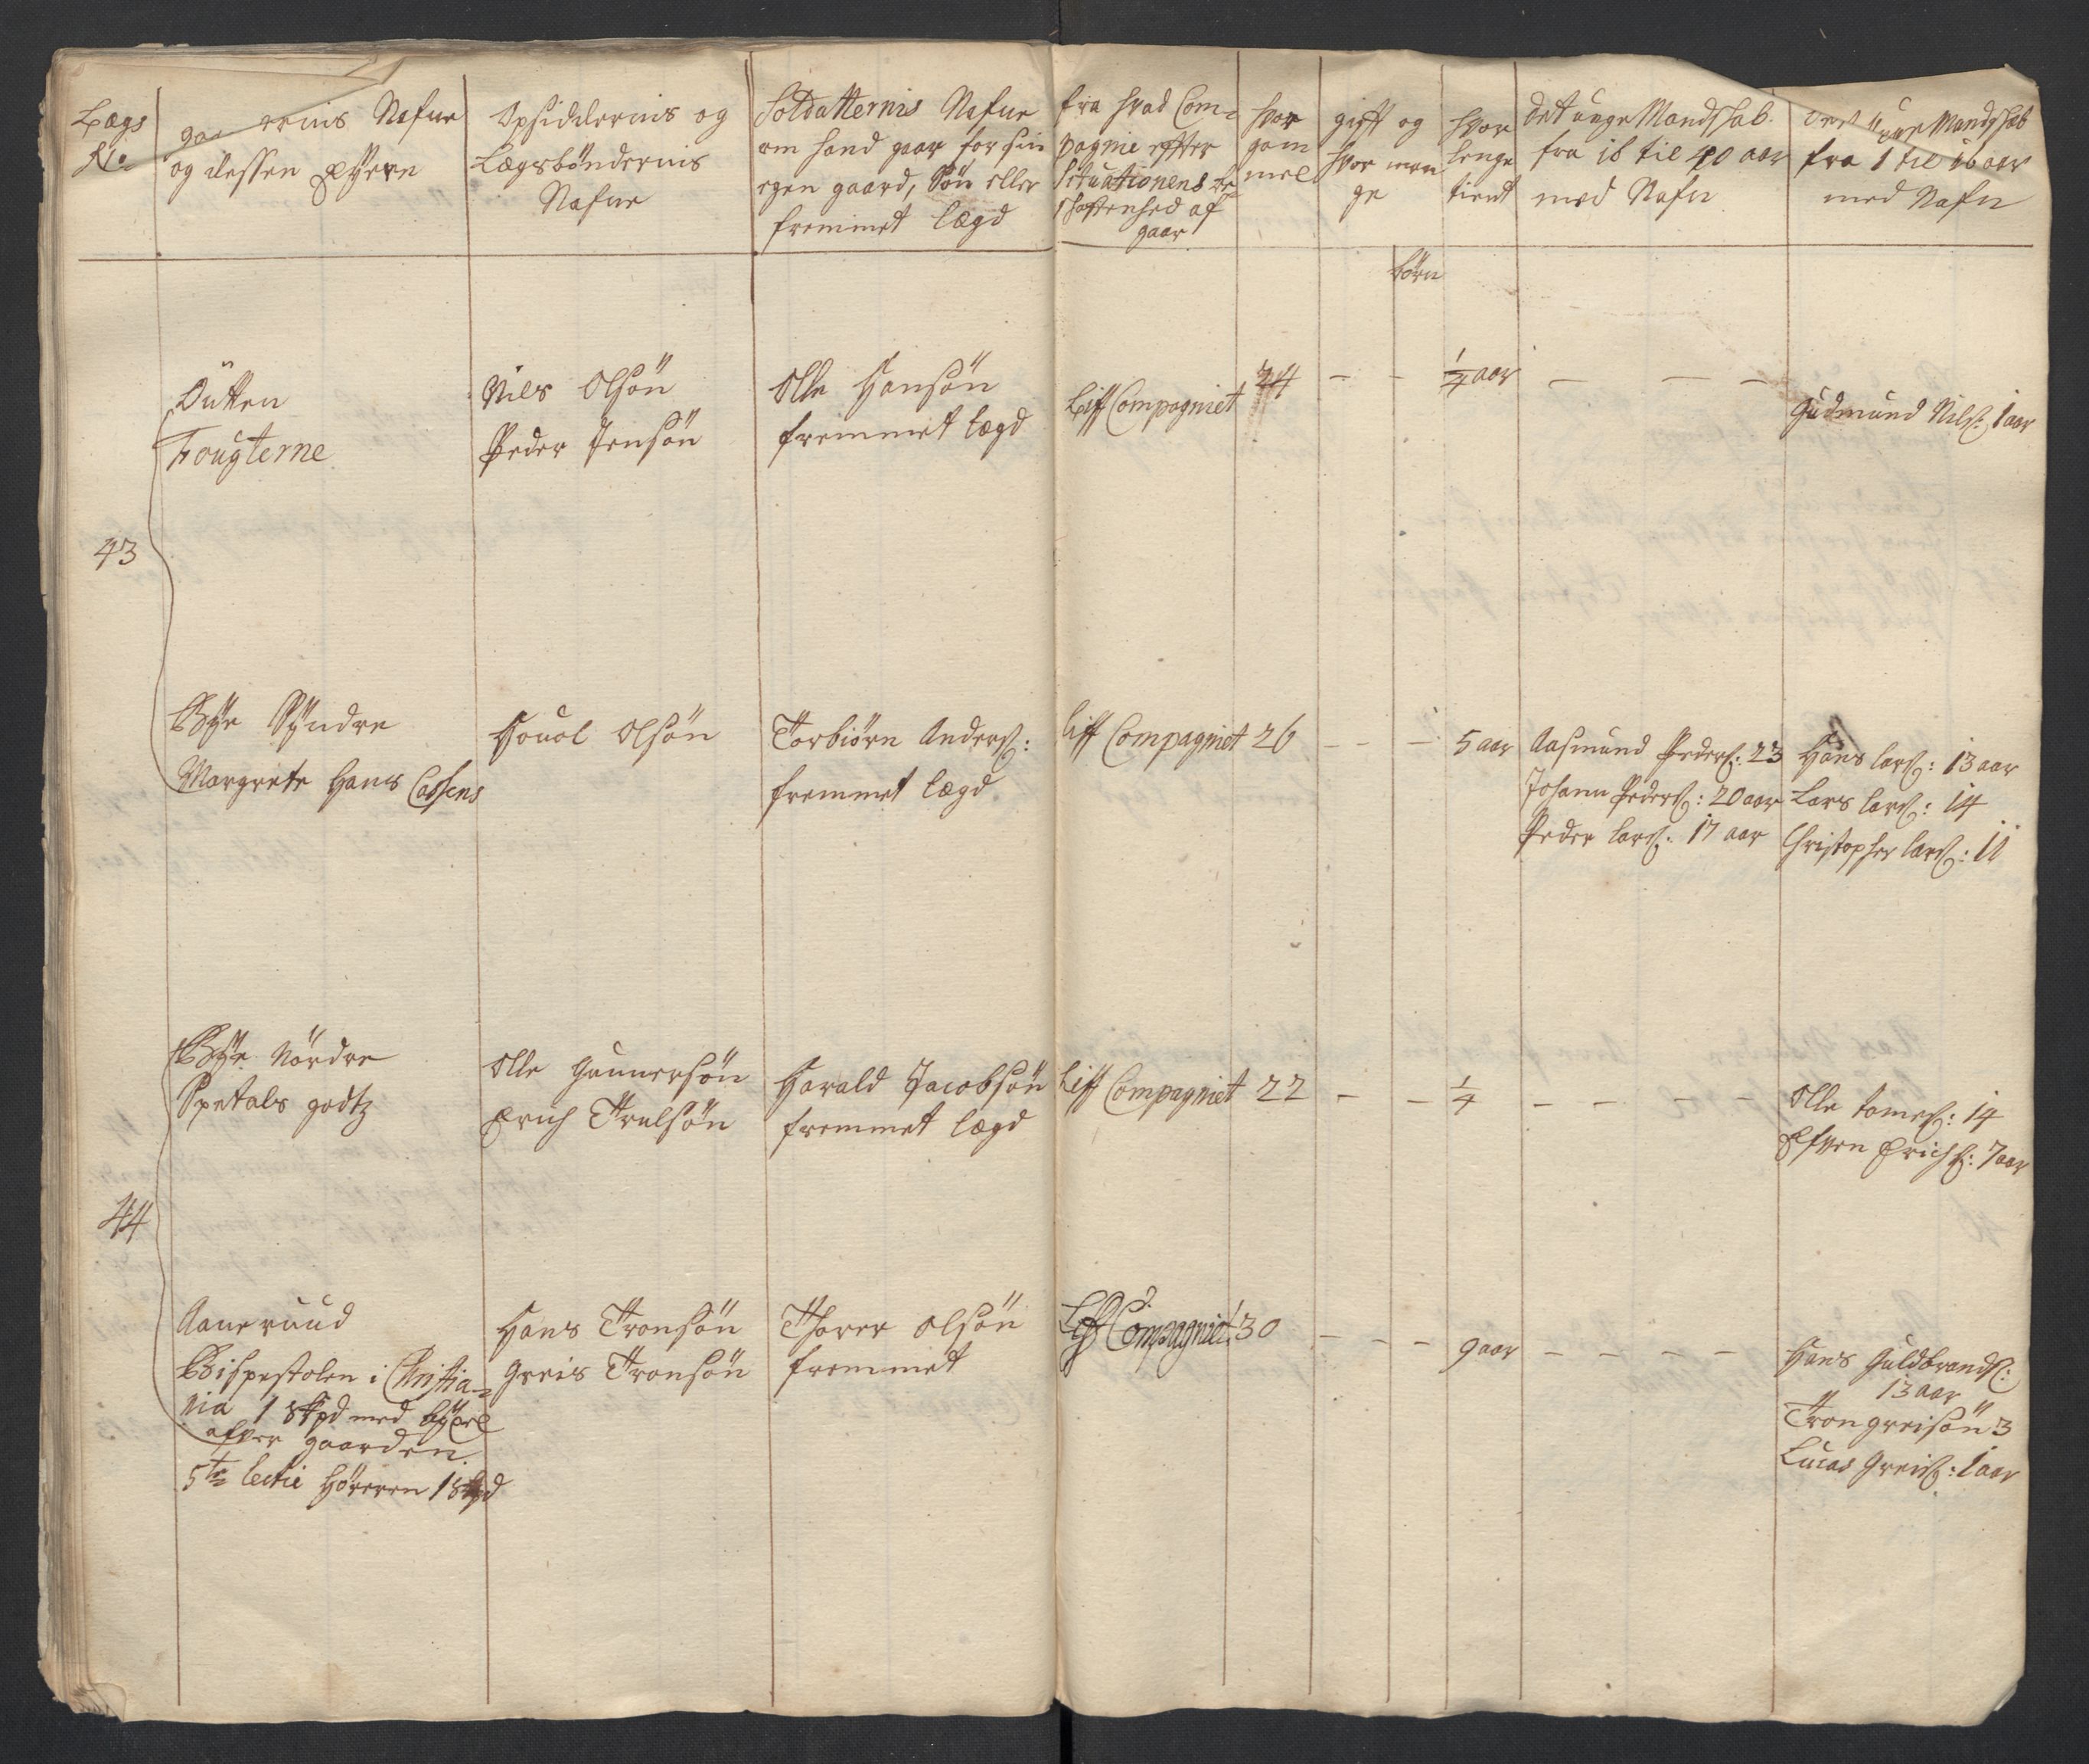 Lægs
No
ernis Nafne
og dessen Eyere
Opsiddernis og
Lægsbøndernis
Nafne
Soldatternis Nafne
om hand gaar for sin
egen gaard, Søn eller
fremmet lægd
fra hvad Com-
pagnie efter
Situationens be-
skaffenhed af
gaar
hvor
gam
mel
gift og
hvor man
ge
hvor
lenge
tient
det unge Mandskab
fra 16 til 40 aar
med Nafn
unge Mandskab
fra 1 til 16 aar
med Nafn
börn
43
Dütten
Fougterne
Niels Olsön
Peder Jensön
Olle Hansön
fremmet lægd
Liff Compagniet
24
- -
1/4 aar
- - -
Gudmund Nilss: 1 aar
Bÿe Sÿndre
Margrete Hans Cassens
Houol Olsön
Torbiörn Anderss:
fremmet lægd
Liff Compagniet
26
- -
5 aar
Aasmund Peders: 23
Johann Peders: 20 aar
Peder larss: 17 aar
Hans larss: 13 aar
Lars larss: 14
Christopher larss: 11
44
Bÿe Nördre
Spetals godtz
Olle Gunnersön
Erich Trulsön
Harald Jacobsön
fremmet lægd
Liff Compagniet
22
- -
1/4
- - - -
Olle tomess: 14
Efven Erichss: 7 aar
Aaneruud
Bispestolen i Christia-
nia 1 Skpd med bÿxel
ofver gaarden.
5te lectie Höreren 1 Skpd
Hans Tronsön
Greis Tronsön
Thorer Olsön
fremmet
Liff Compagniet
30
- - -
9 aar
- - - -
Hans Guldbrandss:
13 aar
Trongreisön 3
Lucas Greiss: 1 aar